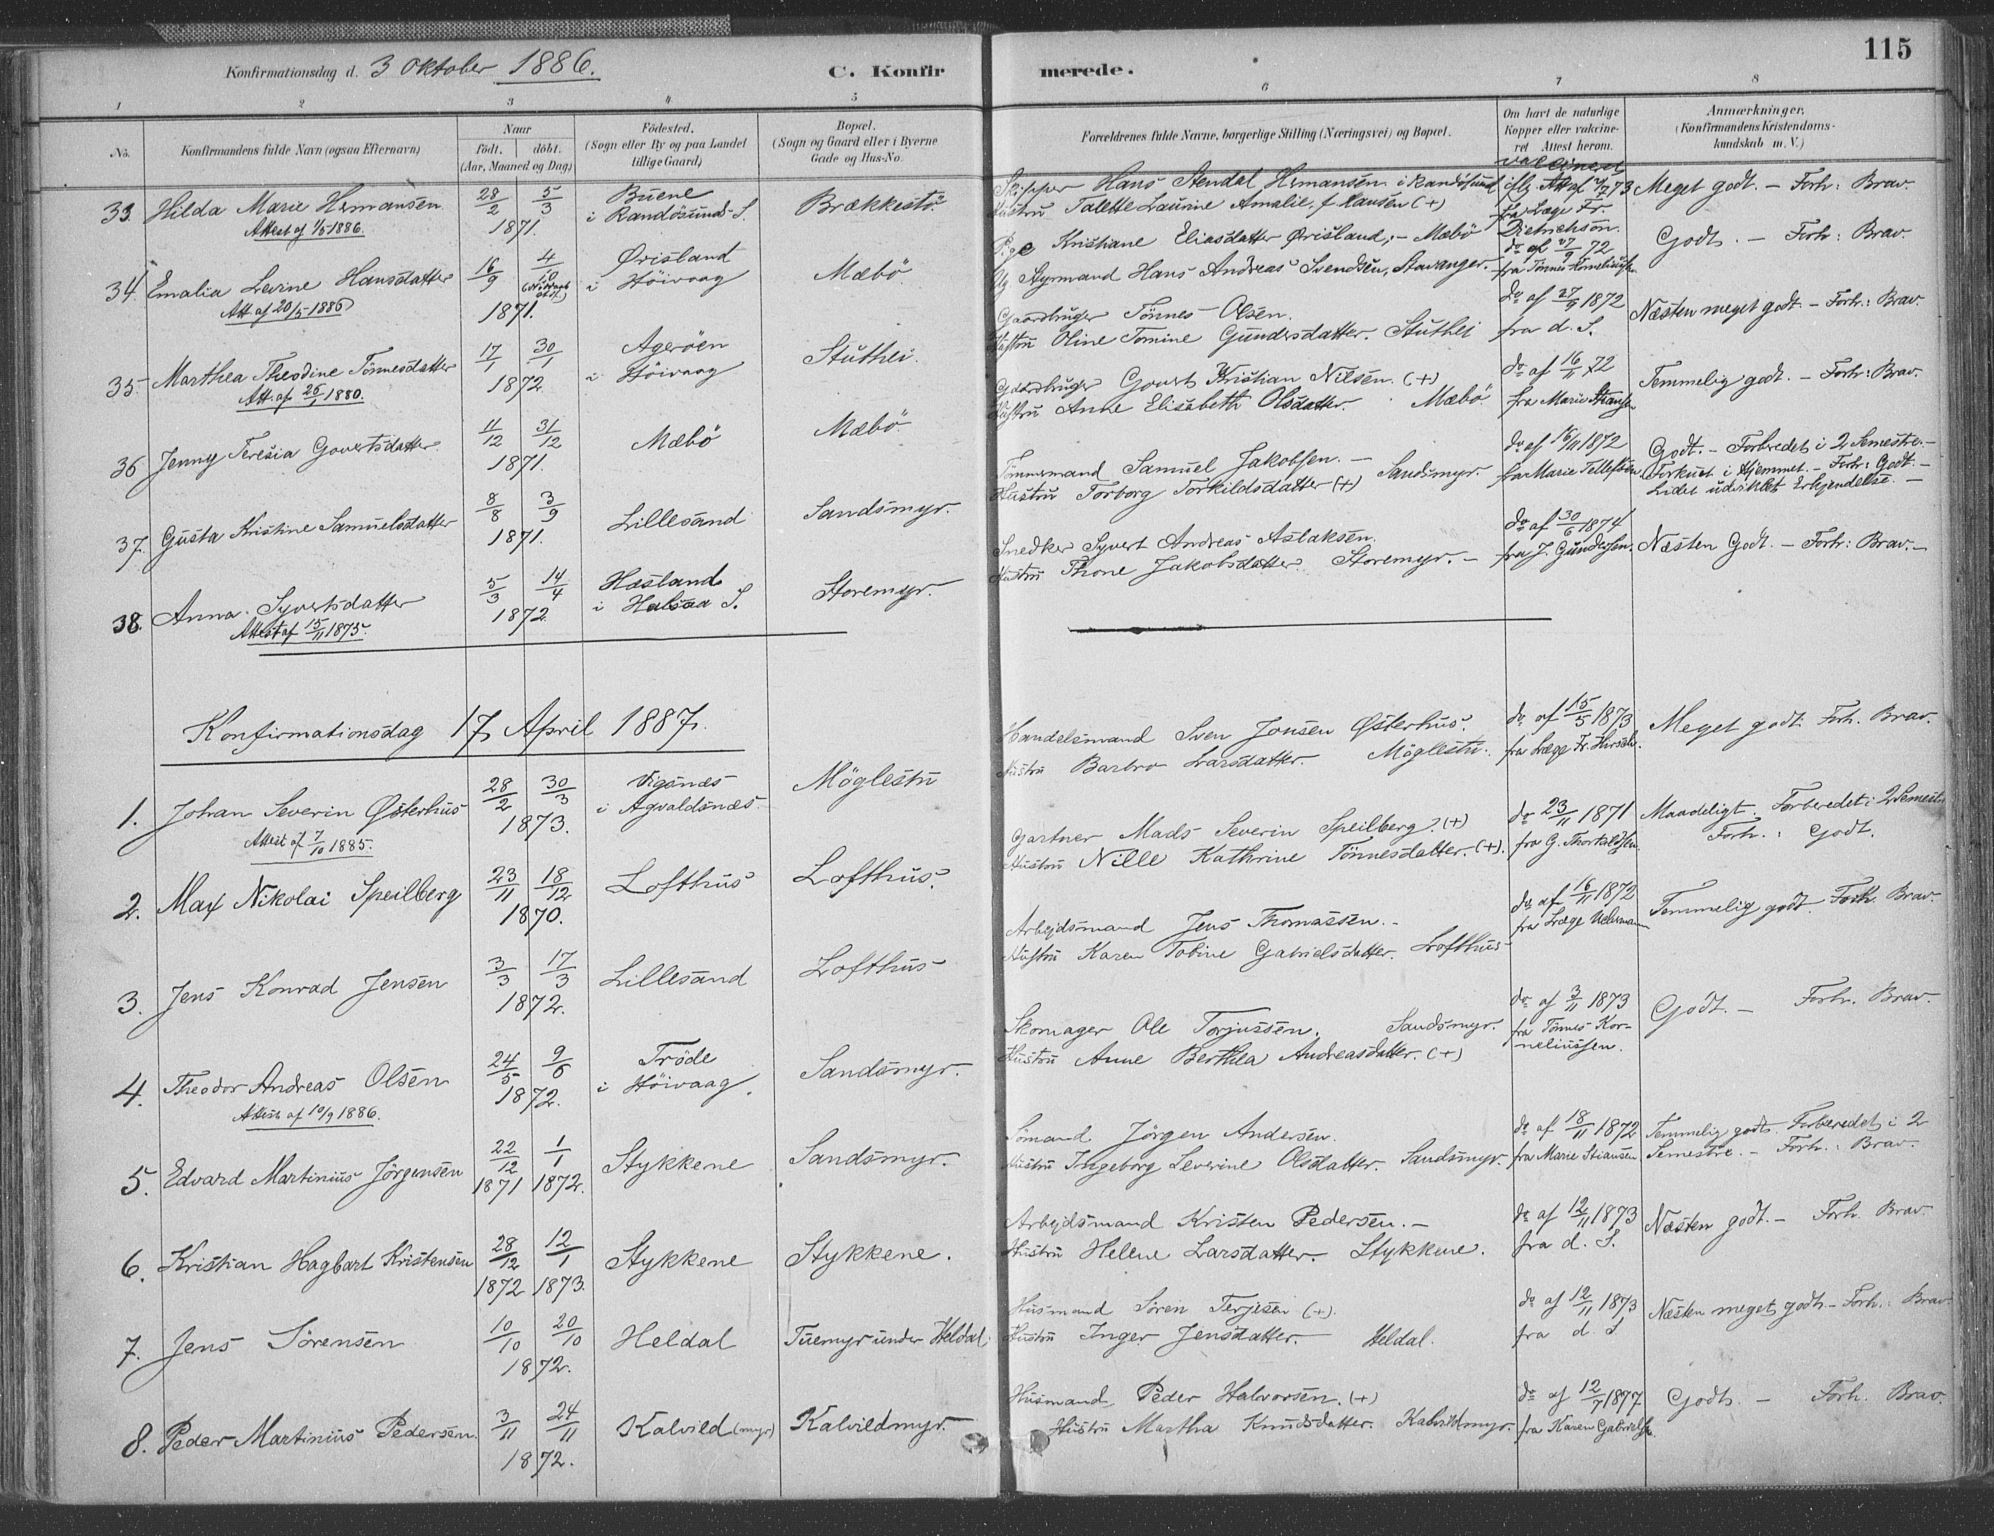 Konfirmationsdag d. 3 Oktober 1886. C. Konfirmerede. 115
1 2 3 4 5 6 7 8
No. Konfirmandens fulde Navn (ogsaa Efternavn) Naar født, døbt. (Aar, Maaned og Dag) Fødested. (Sogn eller By og paa Landet tillige Gaard) Bopæl. (Sogn og Gaard eller i Byerne Gade og Hus-No. Forældrenes fulde Navne, borgerlige Stilling (Næringsvei) og Bopæl. Om havt de naturlige Kopper eller vakcineret Attest herom. Anmærkninger. (Konfirmandens Kristendomskundskab m. V.)
33. Hilda Marie Hermansen. 28/2 5/3 1871. Buene i Randøsunds S. Brækkestø.
Attest af 1/5 1886.
Skipper Hans Stendal Hermansen i Randøsund
Hustru Talette Laurine Amalie, f. Hansen (+)
vaccineret iflg. Att. af 73 fra Læge Fr. Dietrichson.
Meget godt. – Forh: Brav.
34. Emalia Levine Hansdatter 16/9 4/10 1871. Ørisland i Höivaag Mæbö
Att af 20/5 1886
Pige Kristiane Eliasdatter Ørisland, – Mæbö
Ug Styrmand Hans Andreas Svendsen, Stavanger.
do af 27/9 72 fra Tönnes Korneliussen
Godt. – Forh: Brav.
35. Marthea Theodine Tönnesdatter 17/1 30/1 1872. Agerøen i Höivaag Stuthei.
Att. af 26/1 1880.
Gaardbruger Tönnes Olsen.
Hustru Oline Tomine Gundersdatter. Stuthei
do af 27/9 1872 fra d. S.
Næsten meget godt. – Forh: Brav.
36 Jenny Teresia Govertsdatter. 11/12 31/12 1871. Mæbö Mæbö
Gaardbruger Govert Kristian Nilsen. (+)
Hustru Anne Elisabeth Olsdatter. Mæbö.
do af 16/11 72 fra Marie Stiansen
Temmelig godt. – Forh: Brav.
37. Gusta Kristine Samuelsdatter 8/8 3/9 1871. Lillesand Sandsmyr.
Tömmermand Samuel Jakobsen. –
Hustru Torborg Torkildsdatter (+) Sandsmyr.
do af 16/11 1872 fra Marie Tellefsen
Godt. – Forberedet i 2 Semestre. –
Forkuet i Hjemmet. – Forh: Godt. –
Lidet udviklet Erkjendelse. –
38. Anna Syvertsdatter 5/3 14/4 1872 Hæsland i Halsaa S. Storemyr.
Attest af 15/11 1875.
Snedker Syvert Andreas Aslaksen.
Hustru Thone Jakobsdatter. Storemyr. –
do af 30/6 1874 fra J. Gundersen.
Næsten Godt. – Forh: Brav. –
Konfirmationsdag 17 April 1887.
1. Johan Severin Østerhus 28/2 30/3 1873. Vigsnes i Agvaldsnæs. Möglestu
Attest af 7/10 1885.
Handelsmand Sven Jonsen Østerhus.
Hustru Barbro Larsdatter. Möglestu.
do af 15/5 1873 fra Læge Fr.
Meget godt. Forh. Brav.
2. Max Nikolai Speilberg 23/11 18/12 1870. Lofthus Lofthus.
Gartner Mads Severin Speilberg. (+)
Hustru Nille Kathrine Tönnesdatter. (+).
do 23/11 1871 fra G. Thorkildsen.
Maadeligt. Forberedet i 2 Semestre
Forh.: Godt.
3. Jens Konrad Jensen 3/3 17/3 1872. Lillesand Lofthus
Arbejdsmand Jens Thomassen. –
Hustru Karen Tobine Gabrielsdatter. Lofthus
do af 16/11 1872 fra Læge
Temmelig godt. Forh. Brav.
4. Theodor Andreas Olsen 24/5 9/6 1872. Tröde i Höivaag. Sandsmyr.
Attest af 10/9 1886.
Skomager Ole Torjussen. Sandsmyr.
Hustru Anne Berthea Andreasdatter. (+)
do af 3/11 1873 fra Tönnes Korneliussen.
Godt. – Forh. Brav.
5. Edvard Martinius Jörgensen 22/12 1871 1/1 1872. Stykkene Sandsmyr.
Sömand Jörgen Andersen.
Hustru Ingeborg Leverine Olsdatter. Sandsmyr.
do af 18/11 1872 fra Marie Stiansen
Temmelig godt. Forberedet i 2
Semestre. – Forh.: Brav.
6. Kristian Hagbart Kristensen 28/12 1872 12/1 1873. Stykkene Stykkene.
Arbejdsmand Kristen Pedersen. –
Hustru Helene Larsdatter. Stykkene.
do af 12/11 1873 fra d. S.
Næsten godt. – Forh. Brav.
7. Jens Sörensen 10/10 20/10 1872. Heldal Tuemyr under Heldal
Husmand Sören Terjesen (+).
Hustru Inger Jensdatter. Heldal.
do af 12/11 1873 fra d. S.
Næsten meget godt. – Forh: Brav.
8. Peder Martinius Pedersen. 3/11 24/11 1872. Kalvild (myr) Kalvildmyr.
Husmand Peder Halvorsen. (+)
Hustru Martha Knudsdatter. Kalvildmyr.
do af 12/7 1877 fra Karen Gabrielsen.
Godt. – Forh. Brav.